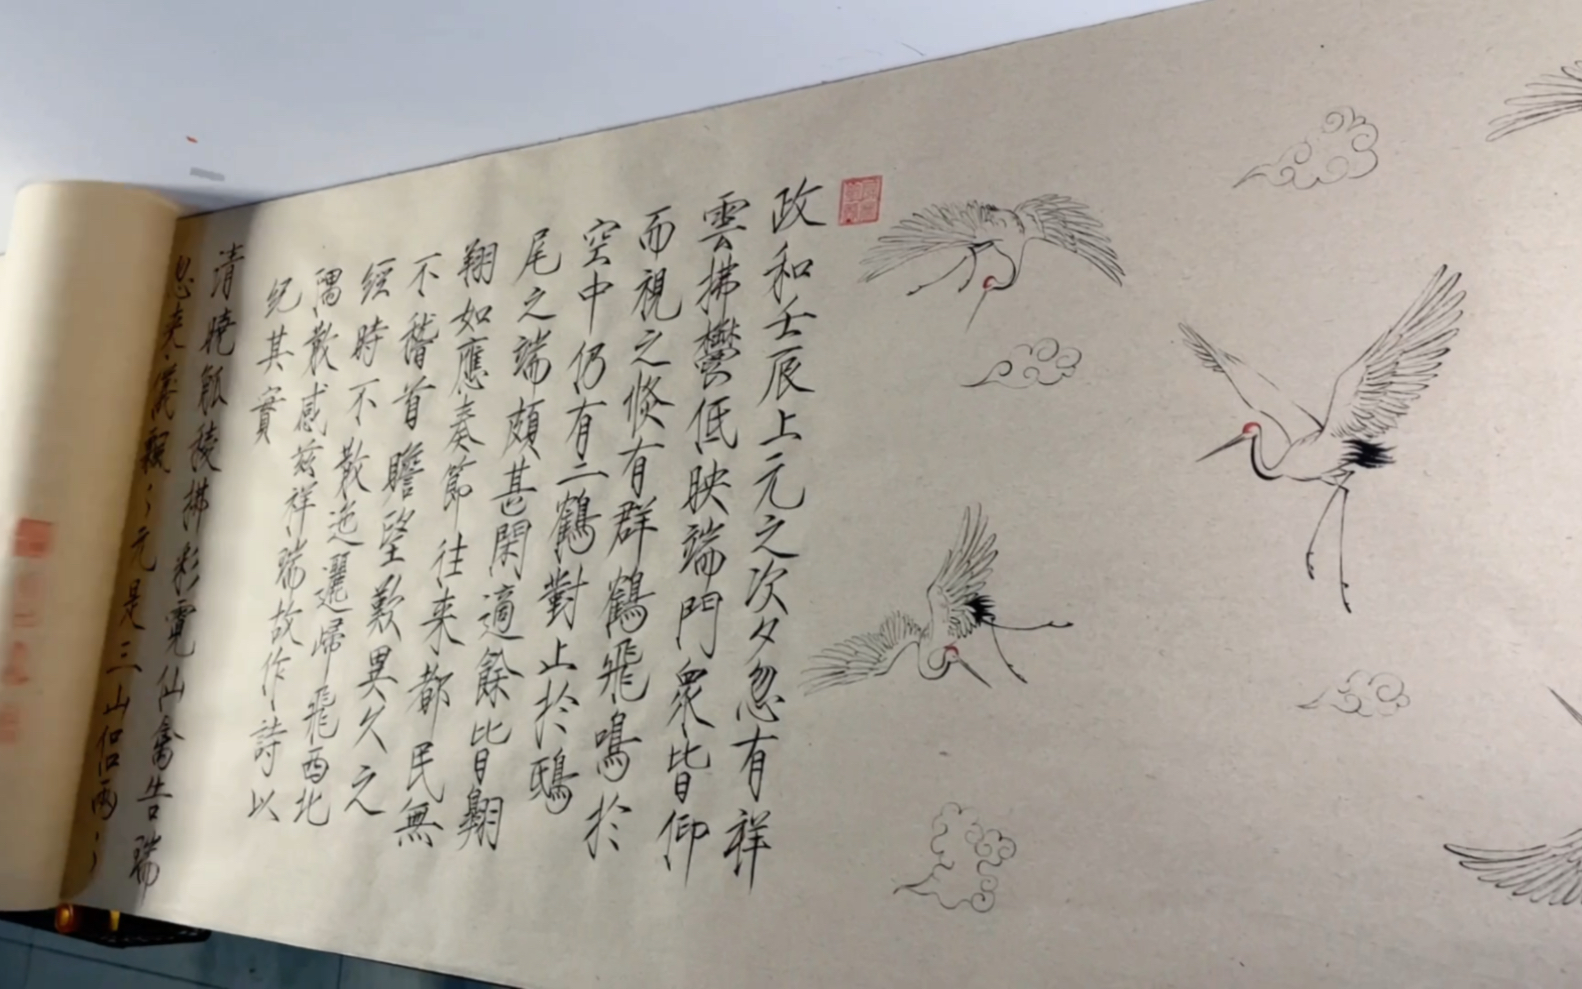 政和壬辰上元之次夕忽有祥
雲拂鬱低映端門衆皆仰
而視之倐有群鶴飛鳴於
空中仍有二鶴對止於鴟
尾之端頗甚閑適餘皆翱
翔如應奏節往来都民無
不稽首瞻望歎異久之
經時不散迤邐歸飛西北
隅散感茲祥瑞故作詩以
紀其實
清曉觚稜拂彩霓仙禽告瑞
忽来儀飄〻元是三山侶兩〻